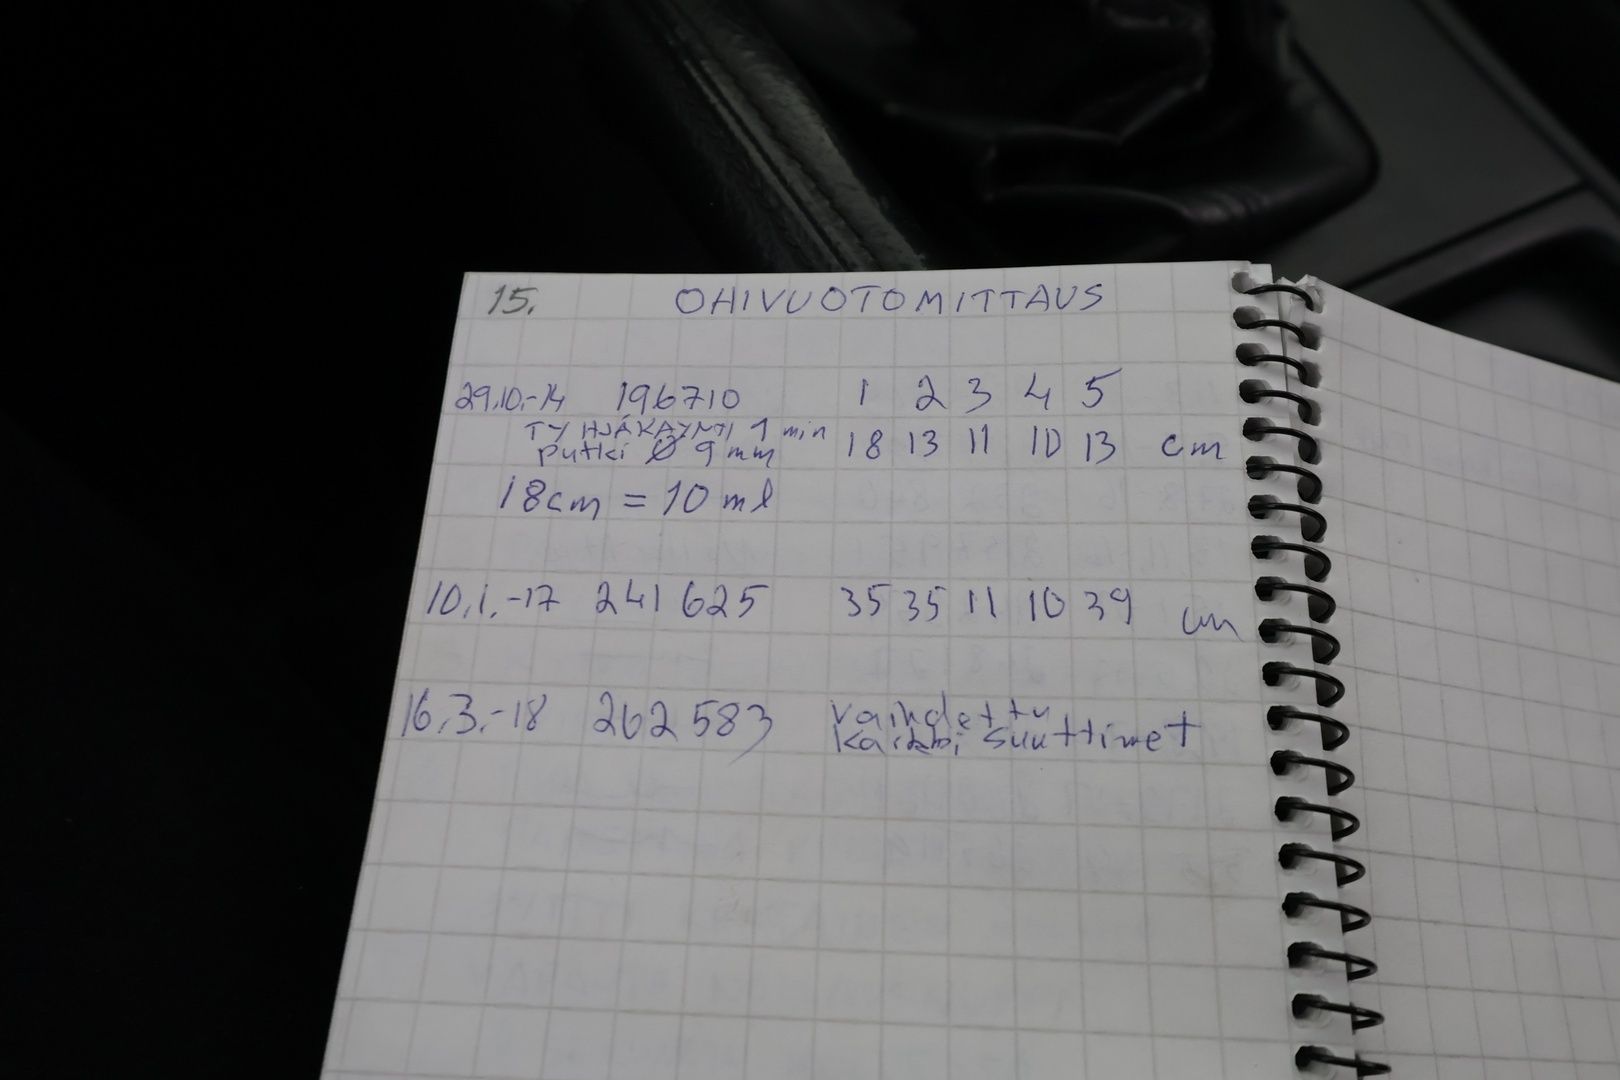 15. OHIVUOTOMITTAUS
29.10.-14 196710 1 2 3 4 5
TYHJÄKÄYNTI 1 min
putki Ø 9 mm 18 13 11 10 13 cm
18cm = 10 ml
10.1.-17 241 625 35 35 11 10 39 cm
16.3.-18 262 583 vaihdettu
kaikki suuttimet